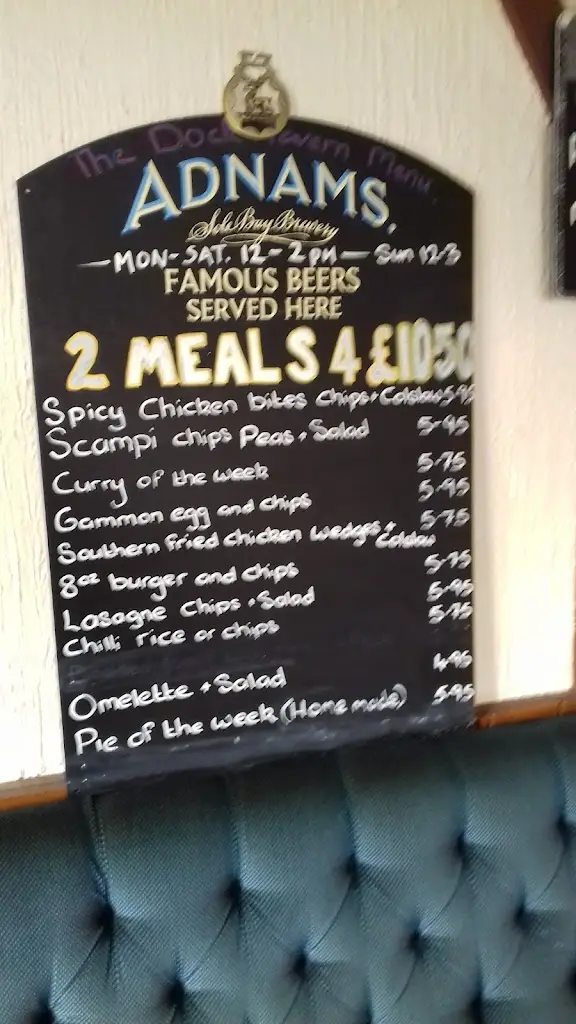 The Dock Tavern Menu
ADNAMS.
Sole Bay Brewery
—MON-SAT. 12-2PM— Sun 12-3
FAMOUS BEERS
SERVED HERE
2 MEALS 4 £10.50
Spicy Chicken bites chips+Coleslaw 5.95
Scampi chips Peas + Salad 5-95
Curry of the week 5-75
Gammon egg and chips 5-95
Southern fried chicken wedges + Coleslaw 5-75
8oz burger and chips 5-75
Lasagne chips + Salad 5-95
Chilli rice or chips 5-75
Omelette + Salad 4-95
Pie of the week (Home made) 5-95